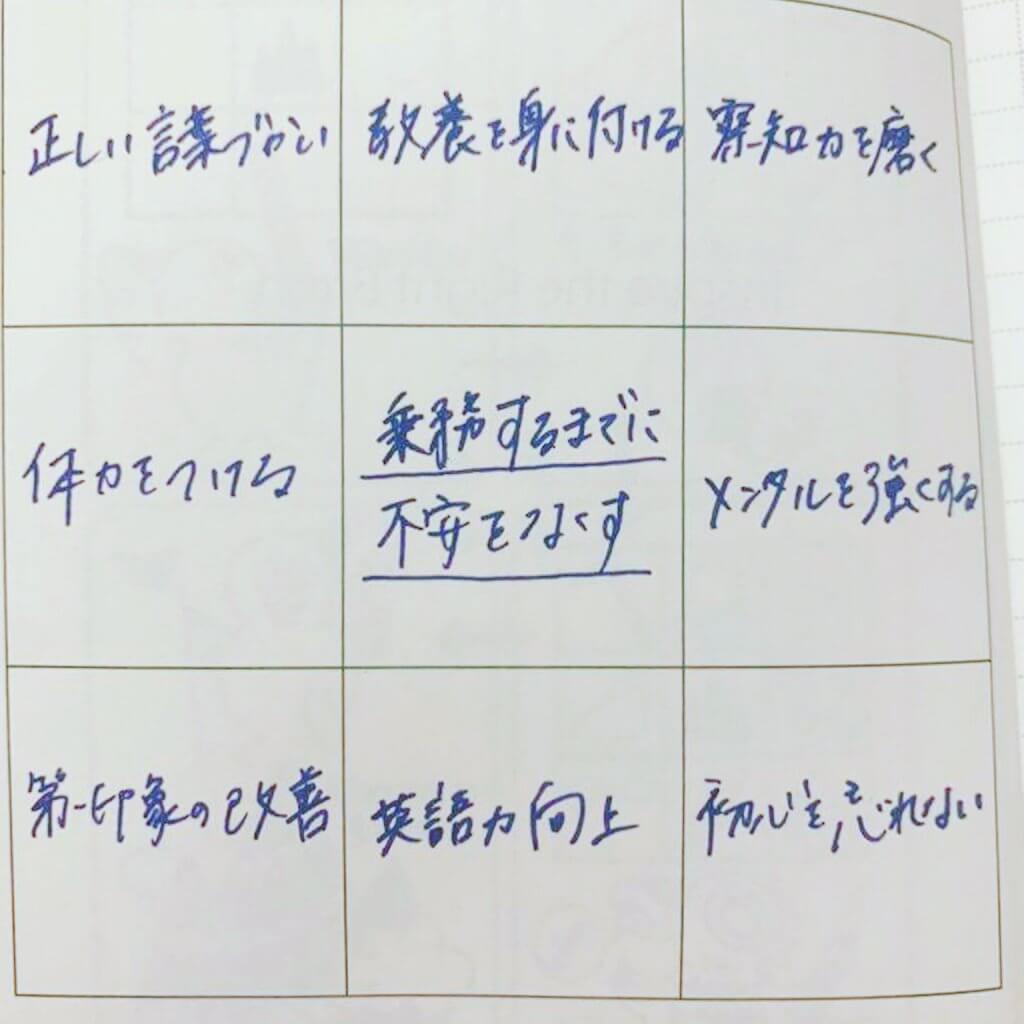 正しい言葉づかい
教養を身に付ける
察知力を磨く
体力をつける
乗務するまでに
不安をなくす
メンタルを強くする
第一印象の改善
英語力向上
初心を忘れない